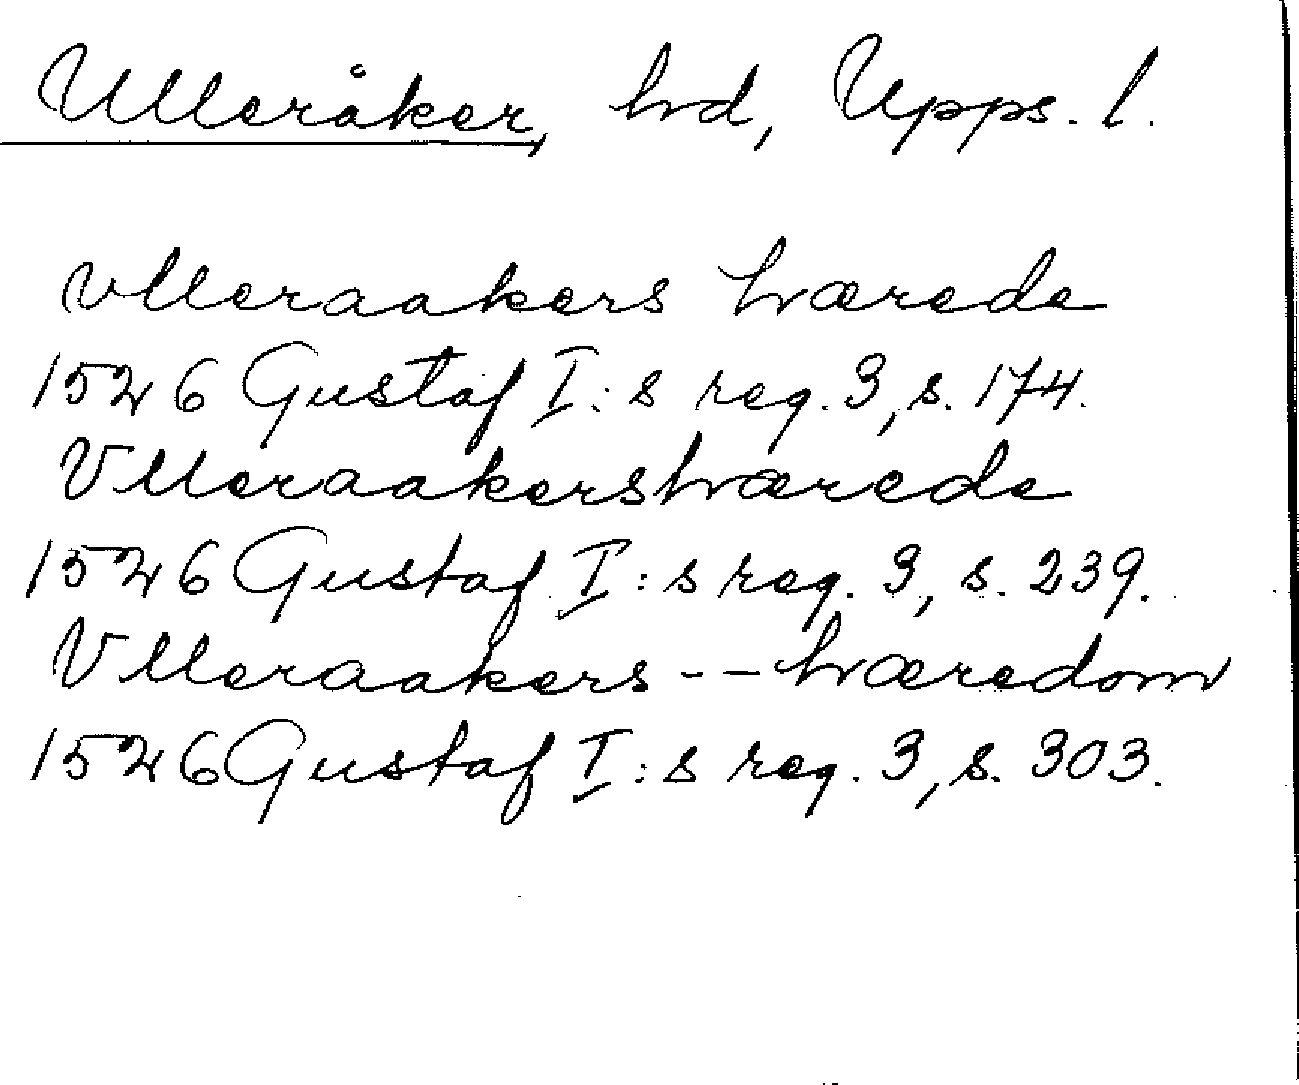 Ulleråker, hd, Upps. l.
vlleraakers hærede
1526 Gustaf I:s reg. 3, s. 174.
Vlleraakershærede
1526 Gustaf I:s reg. 3, s. 239.
Vlleraakers -- hæredom
1526 Gustaf I:s reg. 3, s. 303.